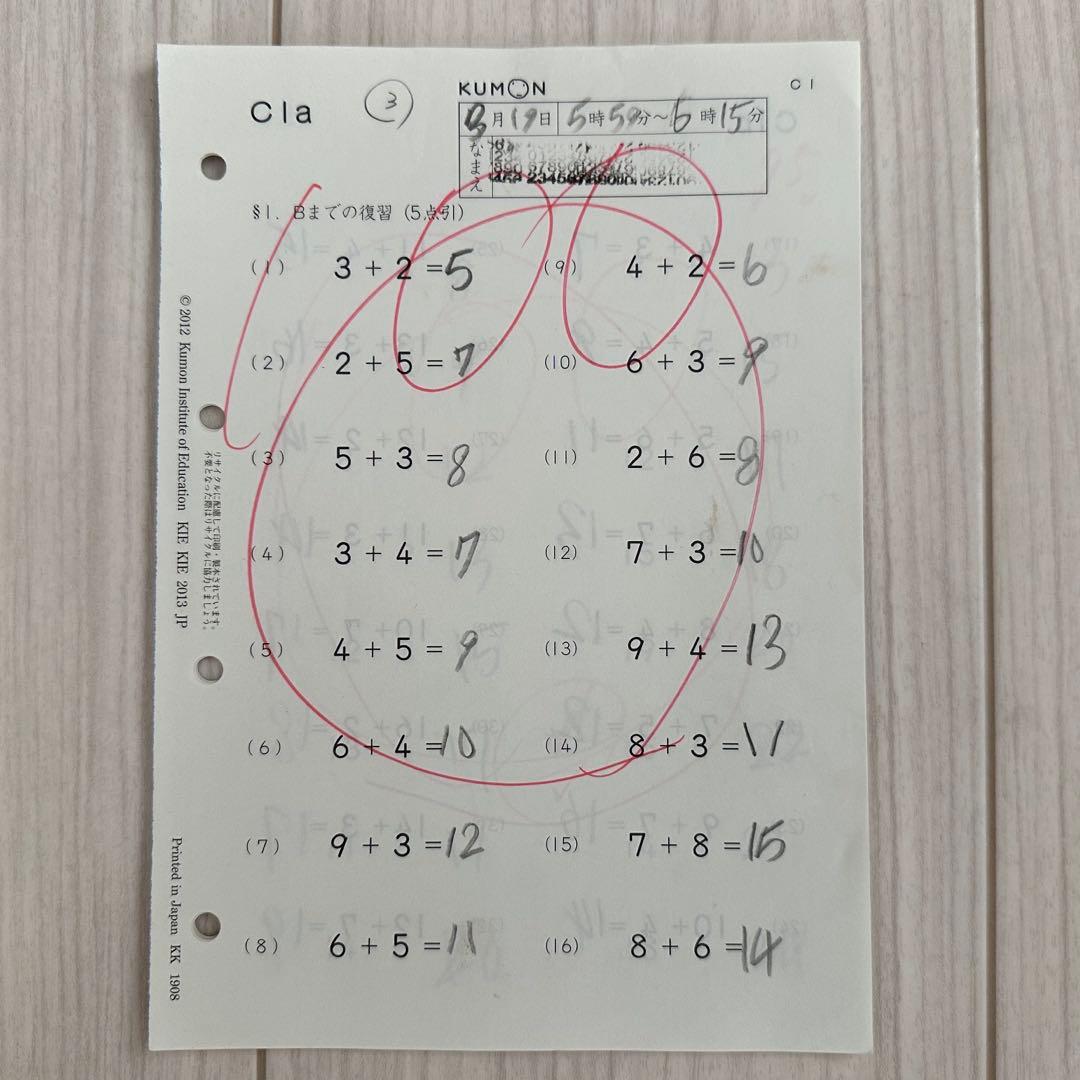 C1a ③ KUMON C1
3月19日 5時50分〜6時15分
なまえ
§1. Bまでの復習 (5点引)
100
(1) 3 + 2 = 5
(2) 2 + 5 = 7
(3) 5 + 3 = 8
(4) 3 + 4 = 7
(5) 4 + 5 = 9
(6) 6 + 4 = 10
(7) 9 + 3 = 12
(8) 6 + 5 = 11
(9) 4 + 2 = 6
(10) 6 + 3 = 9
(11) 2 + 6 = 8
(12) 7 + 3 = 10
(13) 9 + 4 = 13
(14) 8 + 3 = 11
(15) 7 + 8 = 15
(16) 8 + 6 = 14
リサイクルに配慮して印刷・製本されています。
不要となった際はリサイクルに協力しましょう。
© 2012 Kumon Institute of Education KIE KIE 2013 JP
Printed in Japan KK 1908